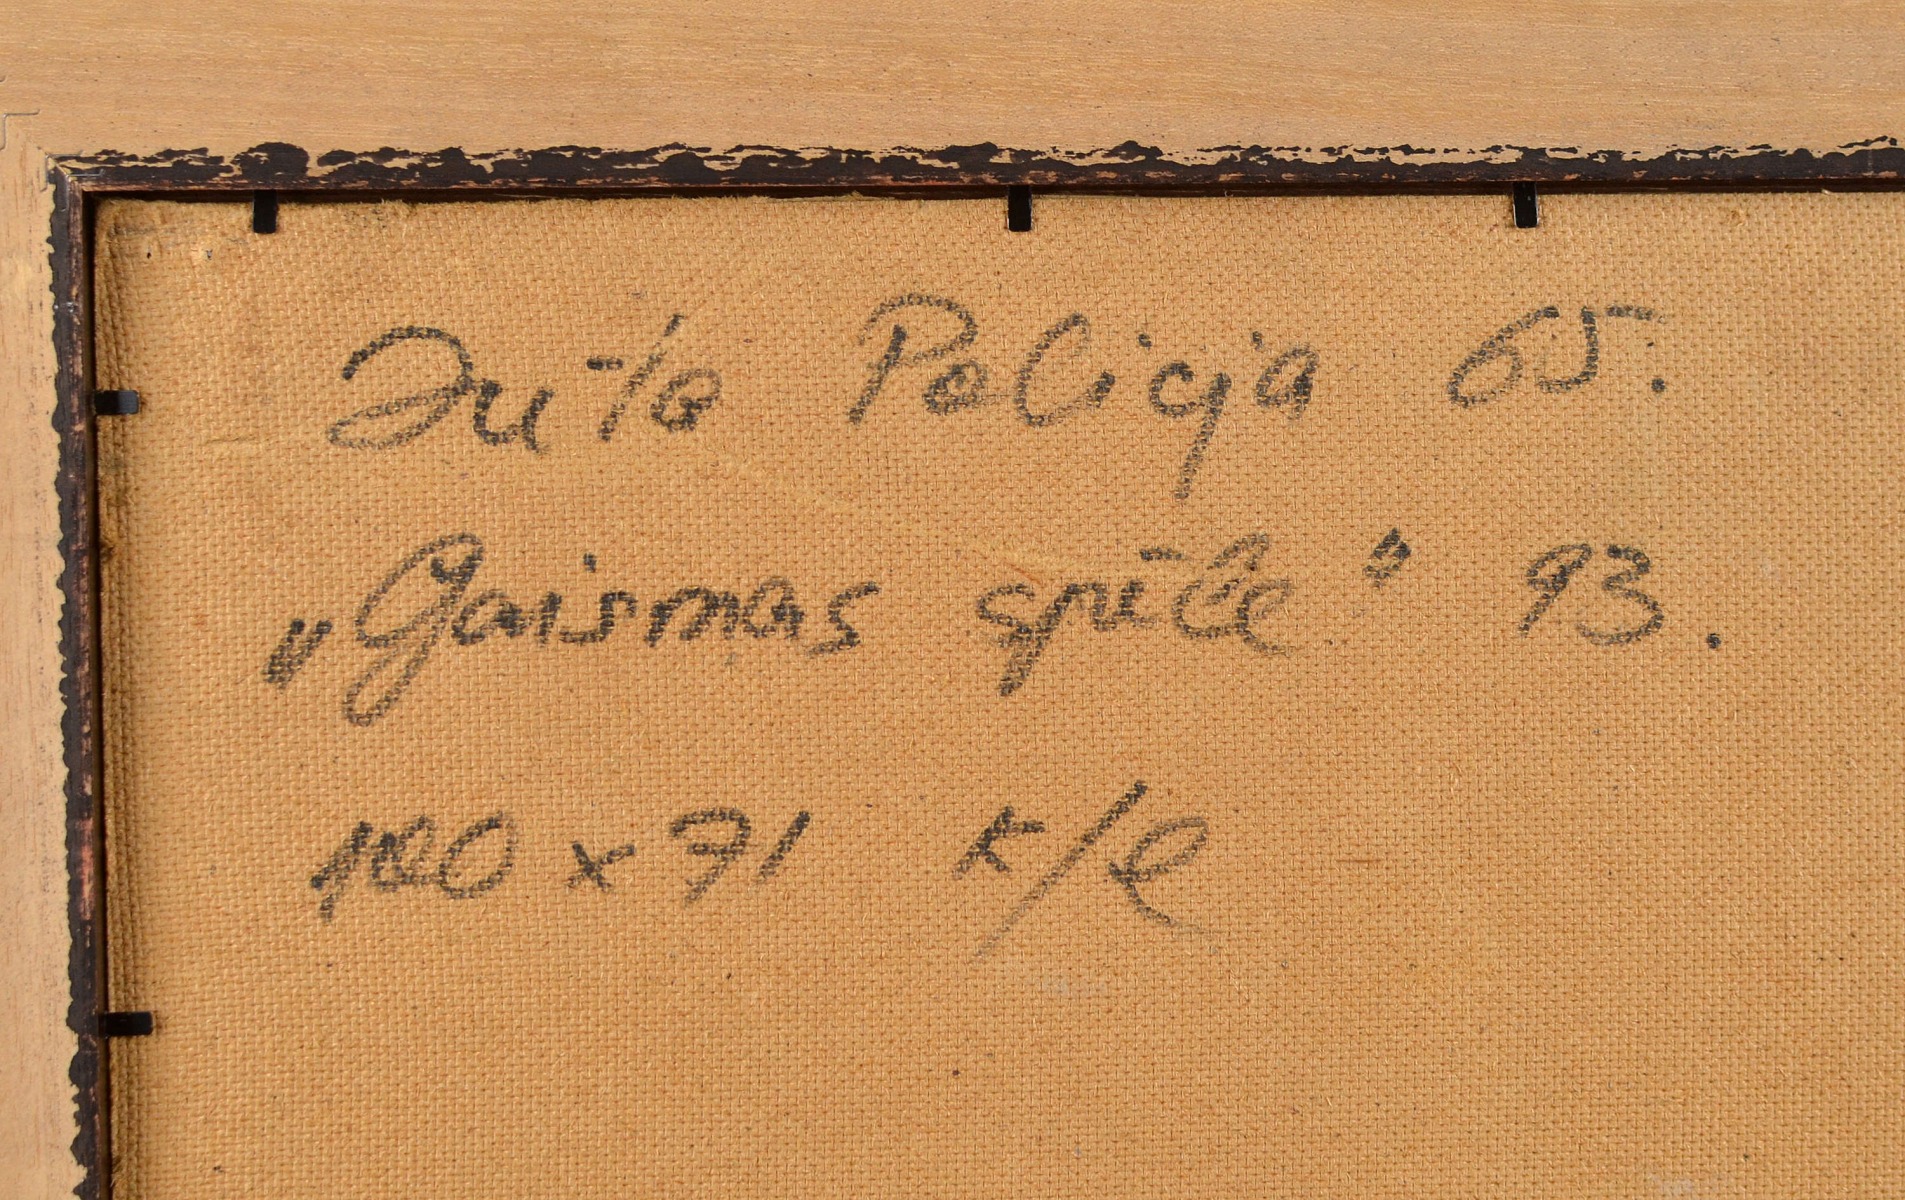 Juta Policja 65.
„Gaismas spēle” 93.
100 x 71 k/e